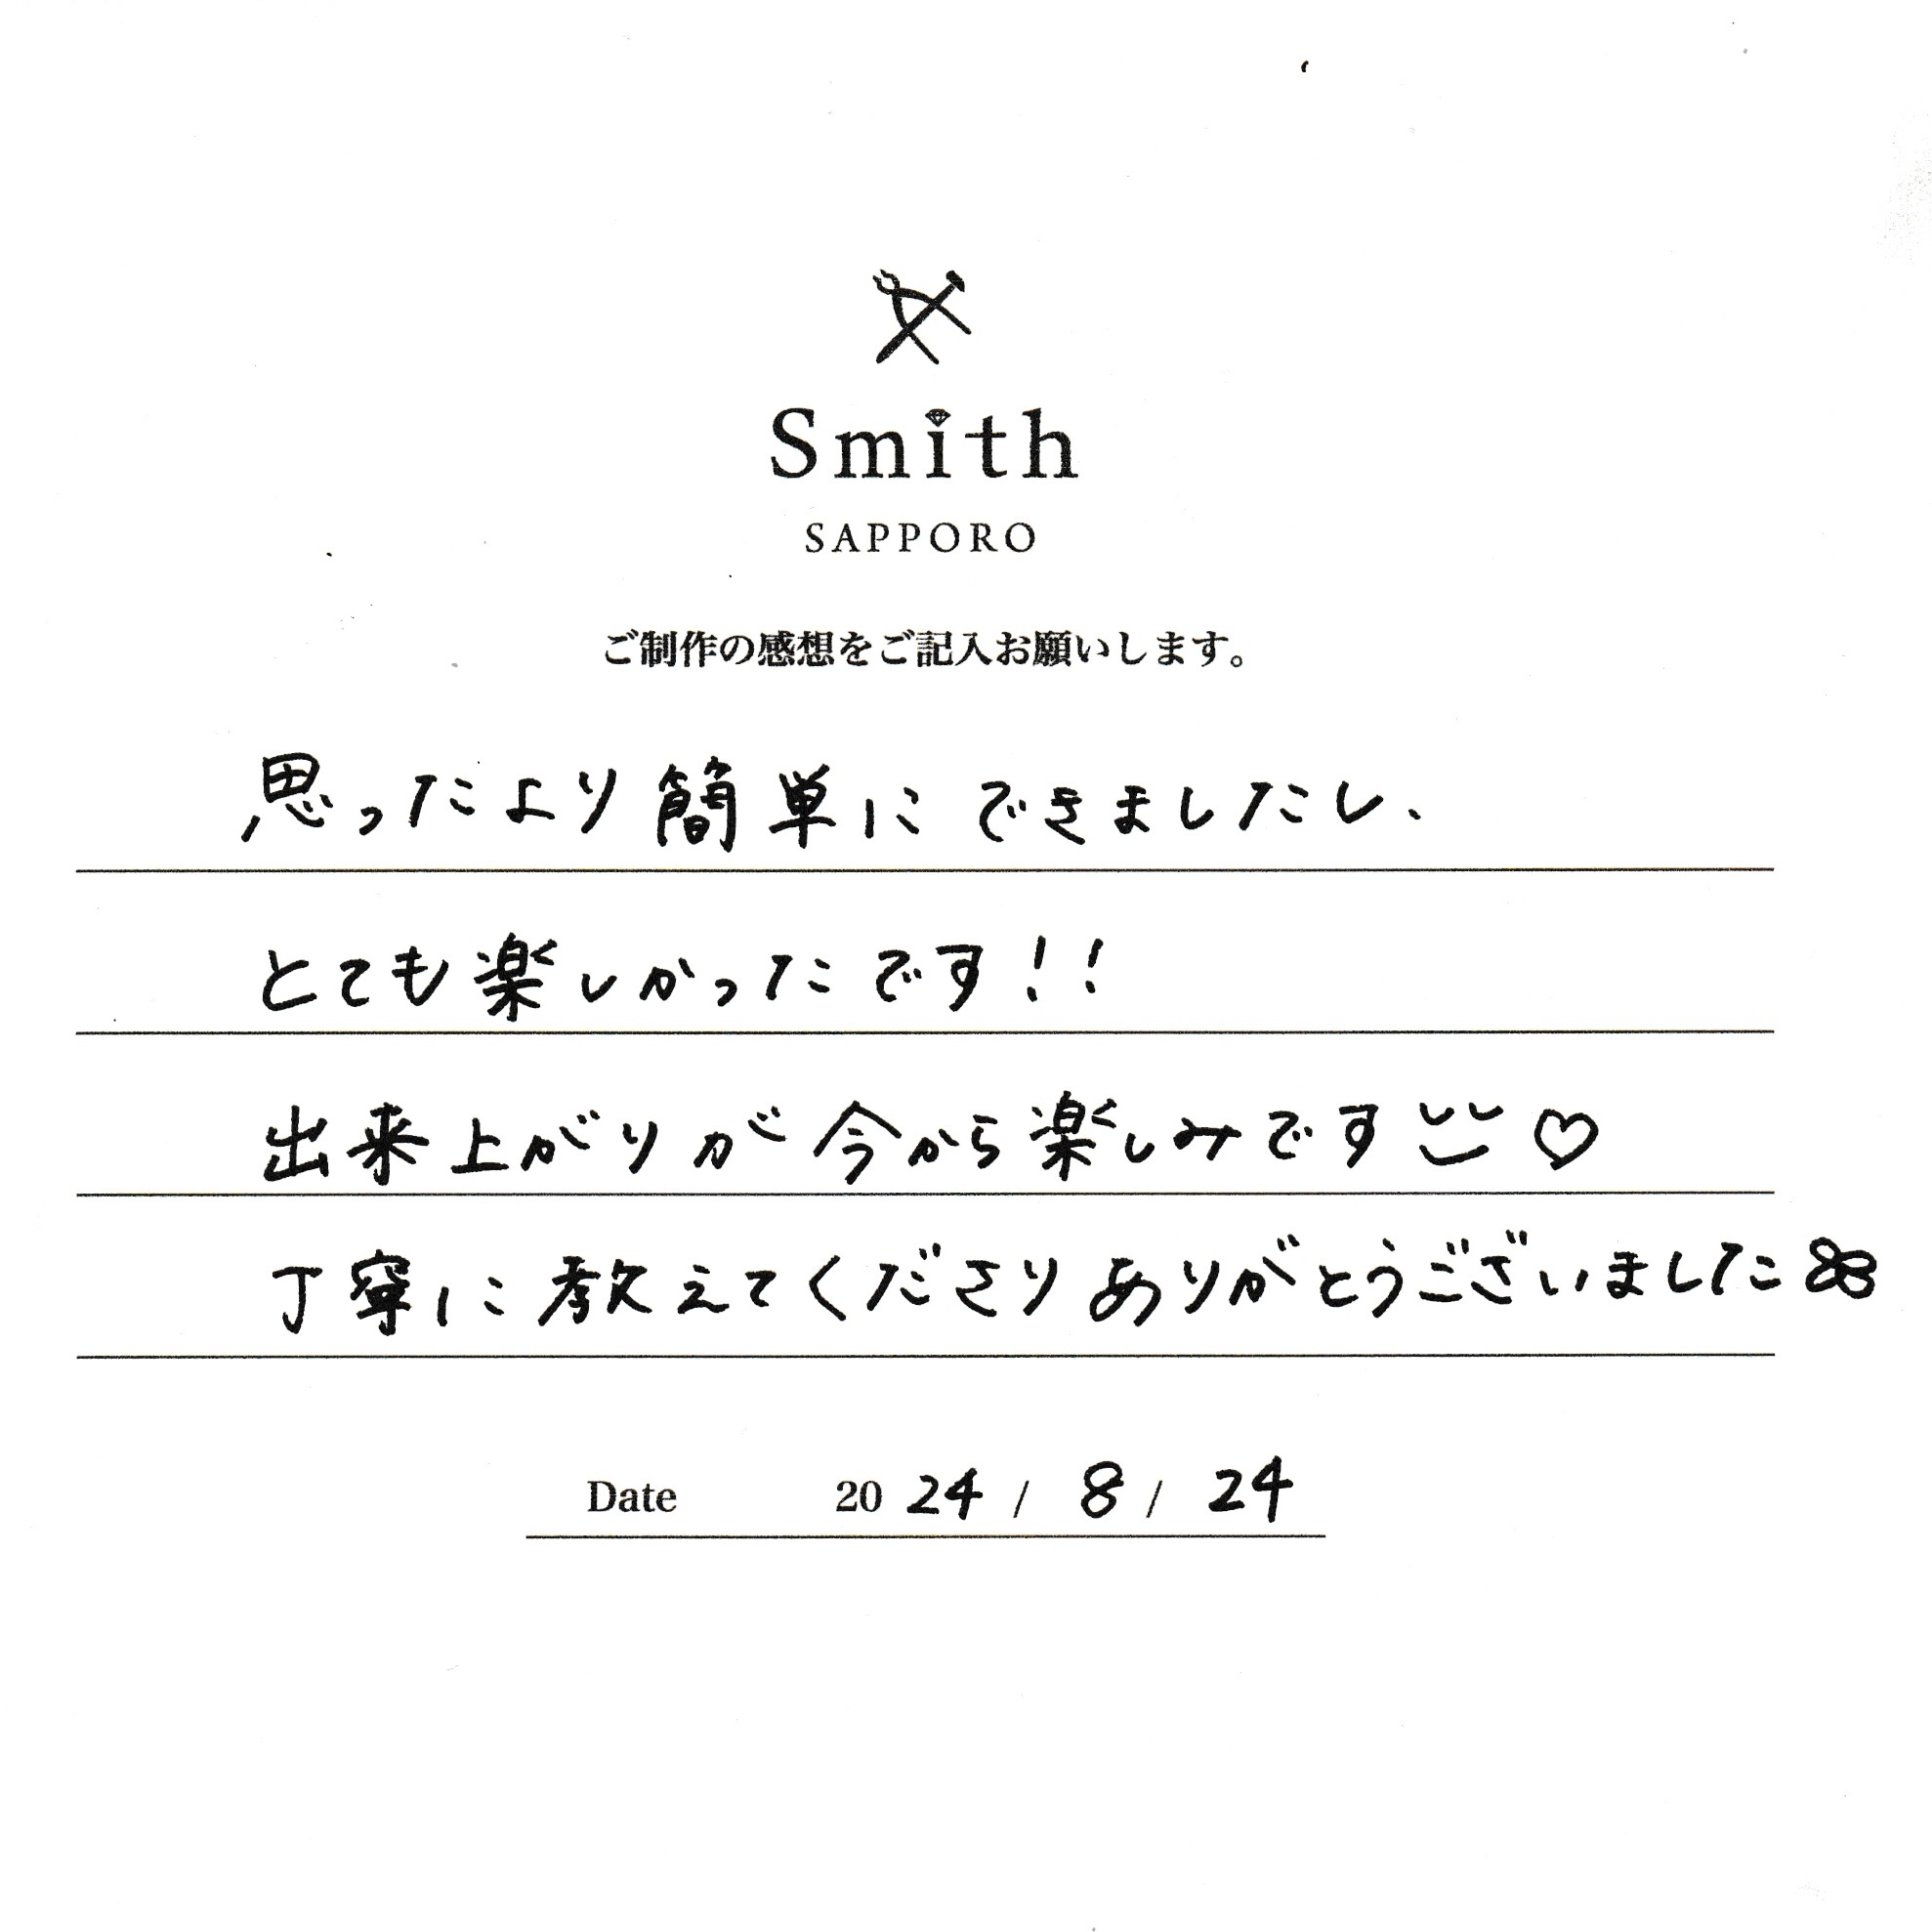 Smith
SAPPORO
ご制作の感想をご記入お願いします。
思ったより簡単にできましたし、
とても楽しかったです!!
出来上がりが今から楽しみです♡
丁寧に教えてくださりありがとうございました
Date 2024 / 8 / 24